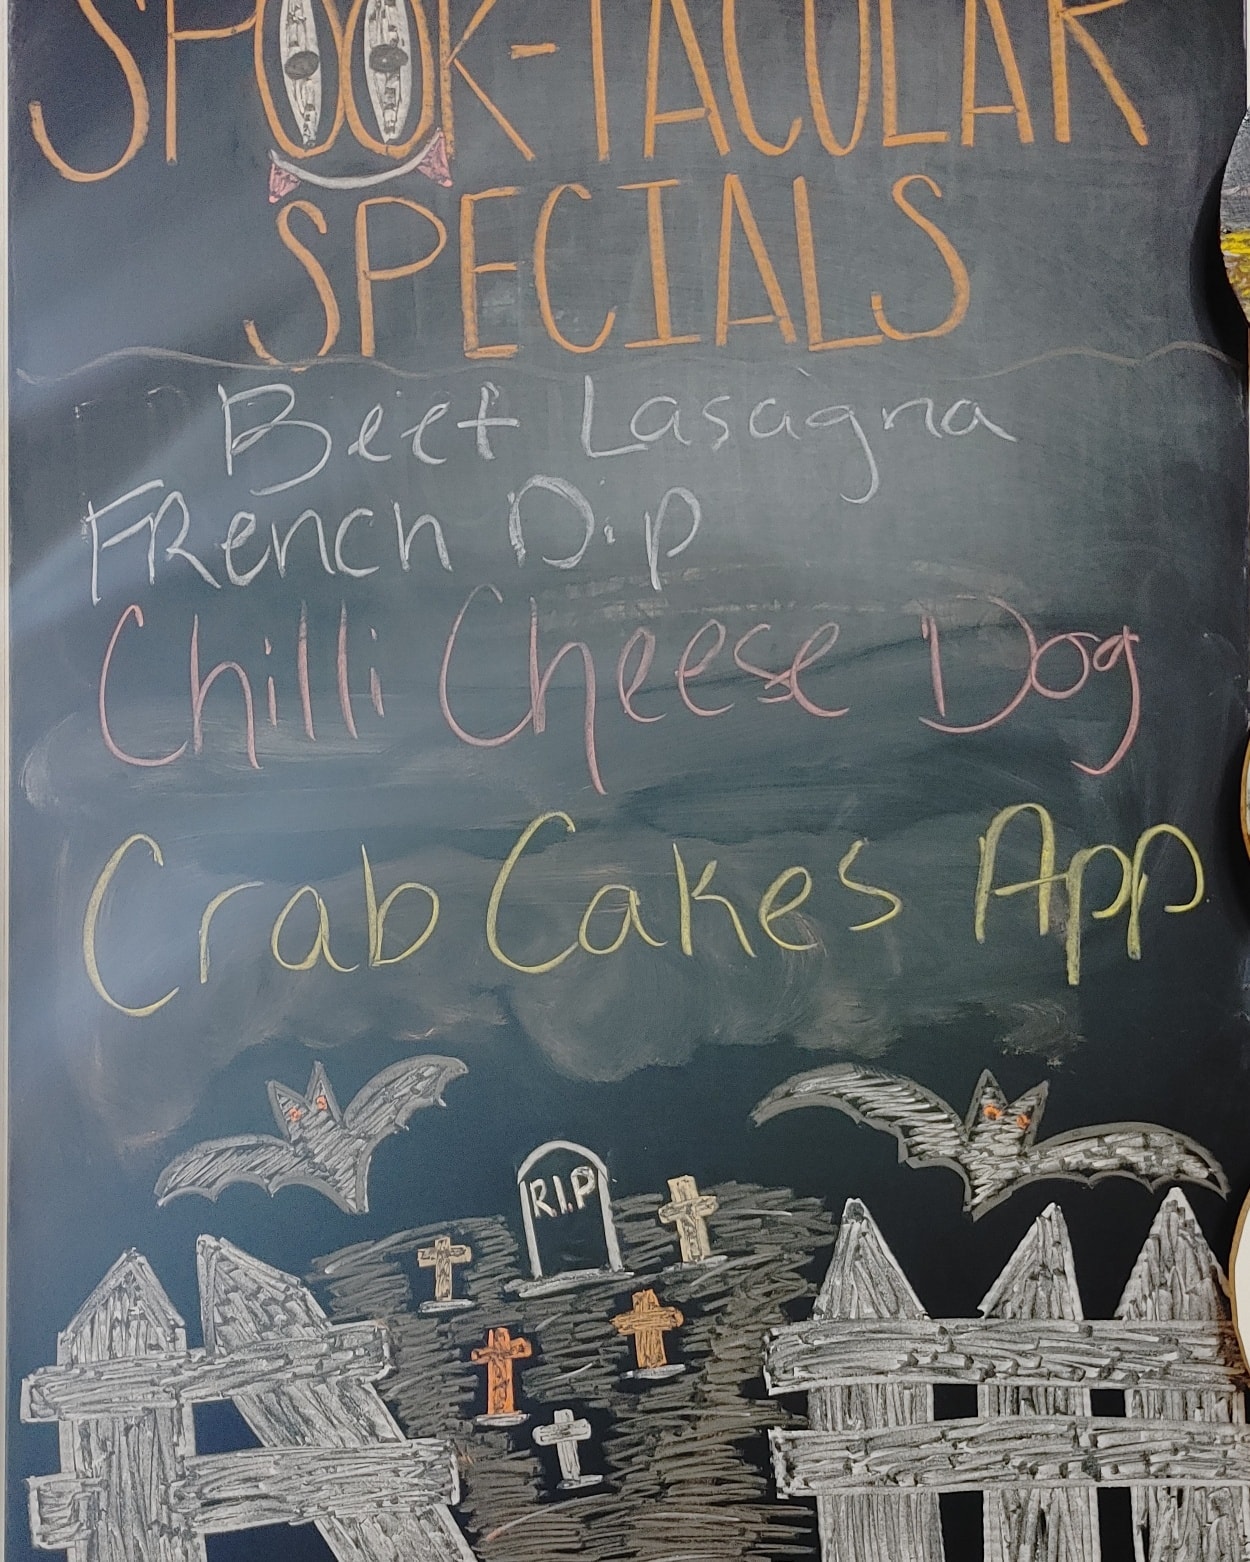 SPOOK-TACULAR
SPECIALS
Beef Lasagna
FRench Dip
Chilli Cheese Dog
Crab Cakes App
R.I.P